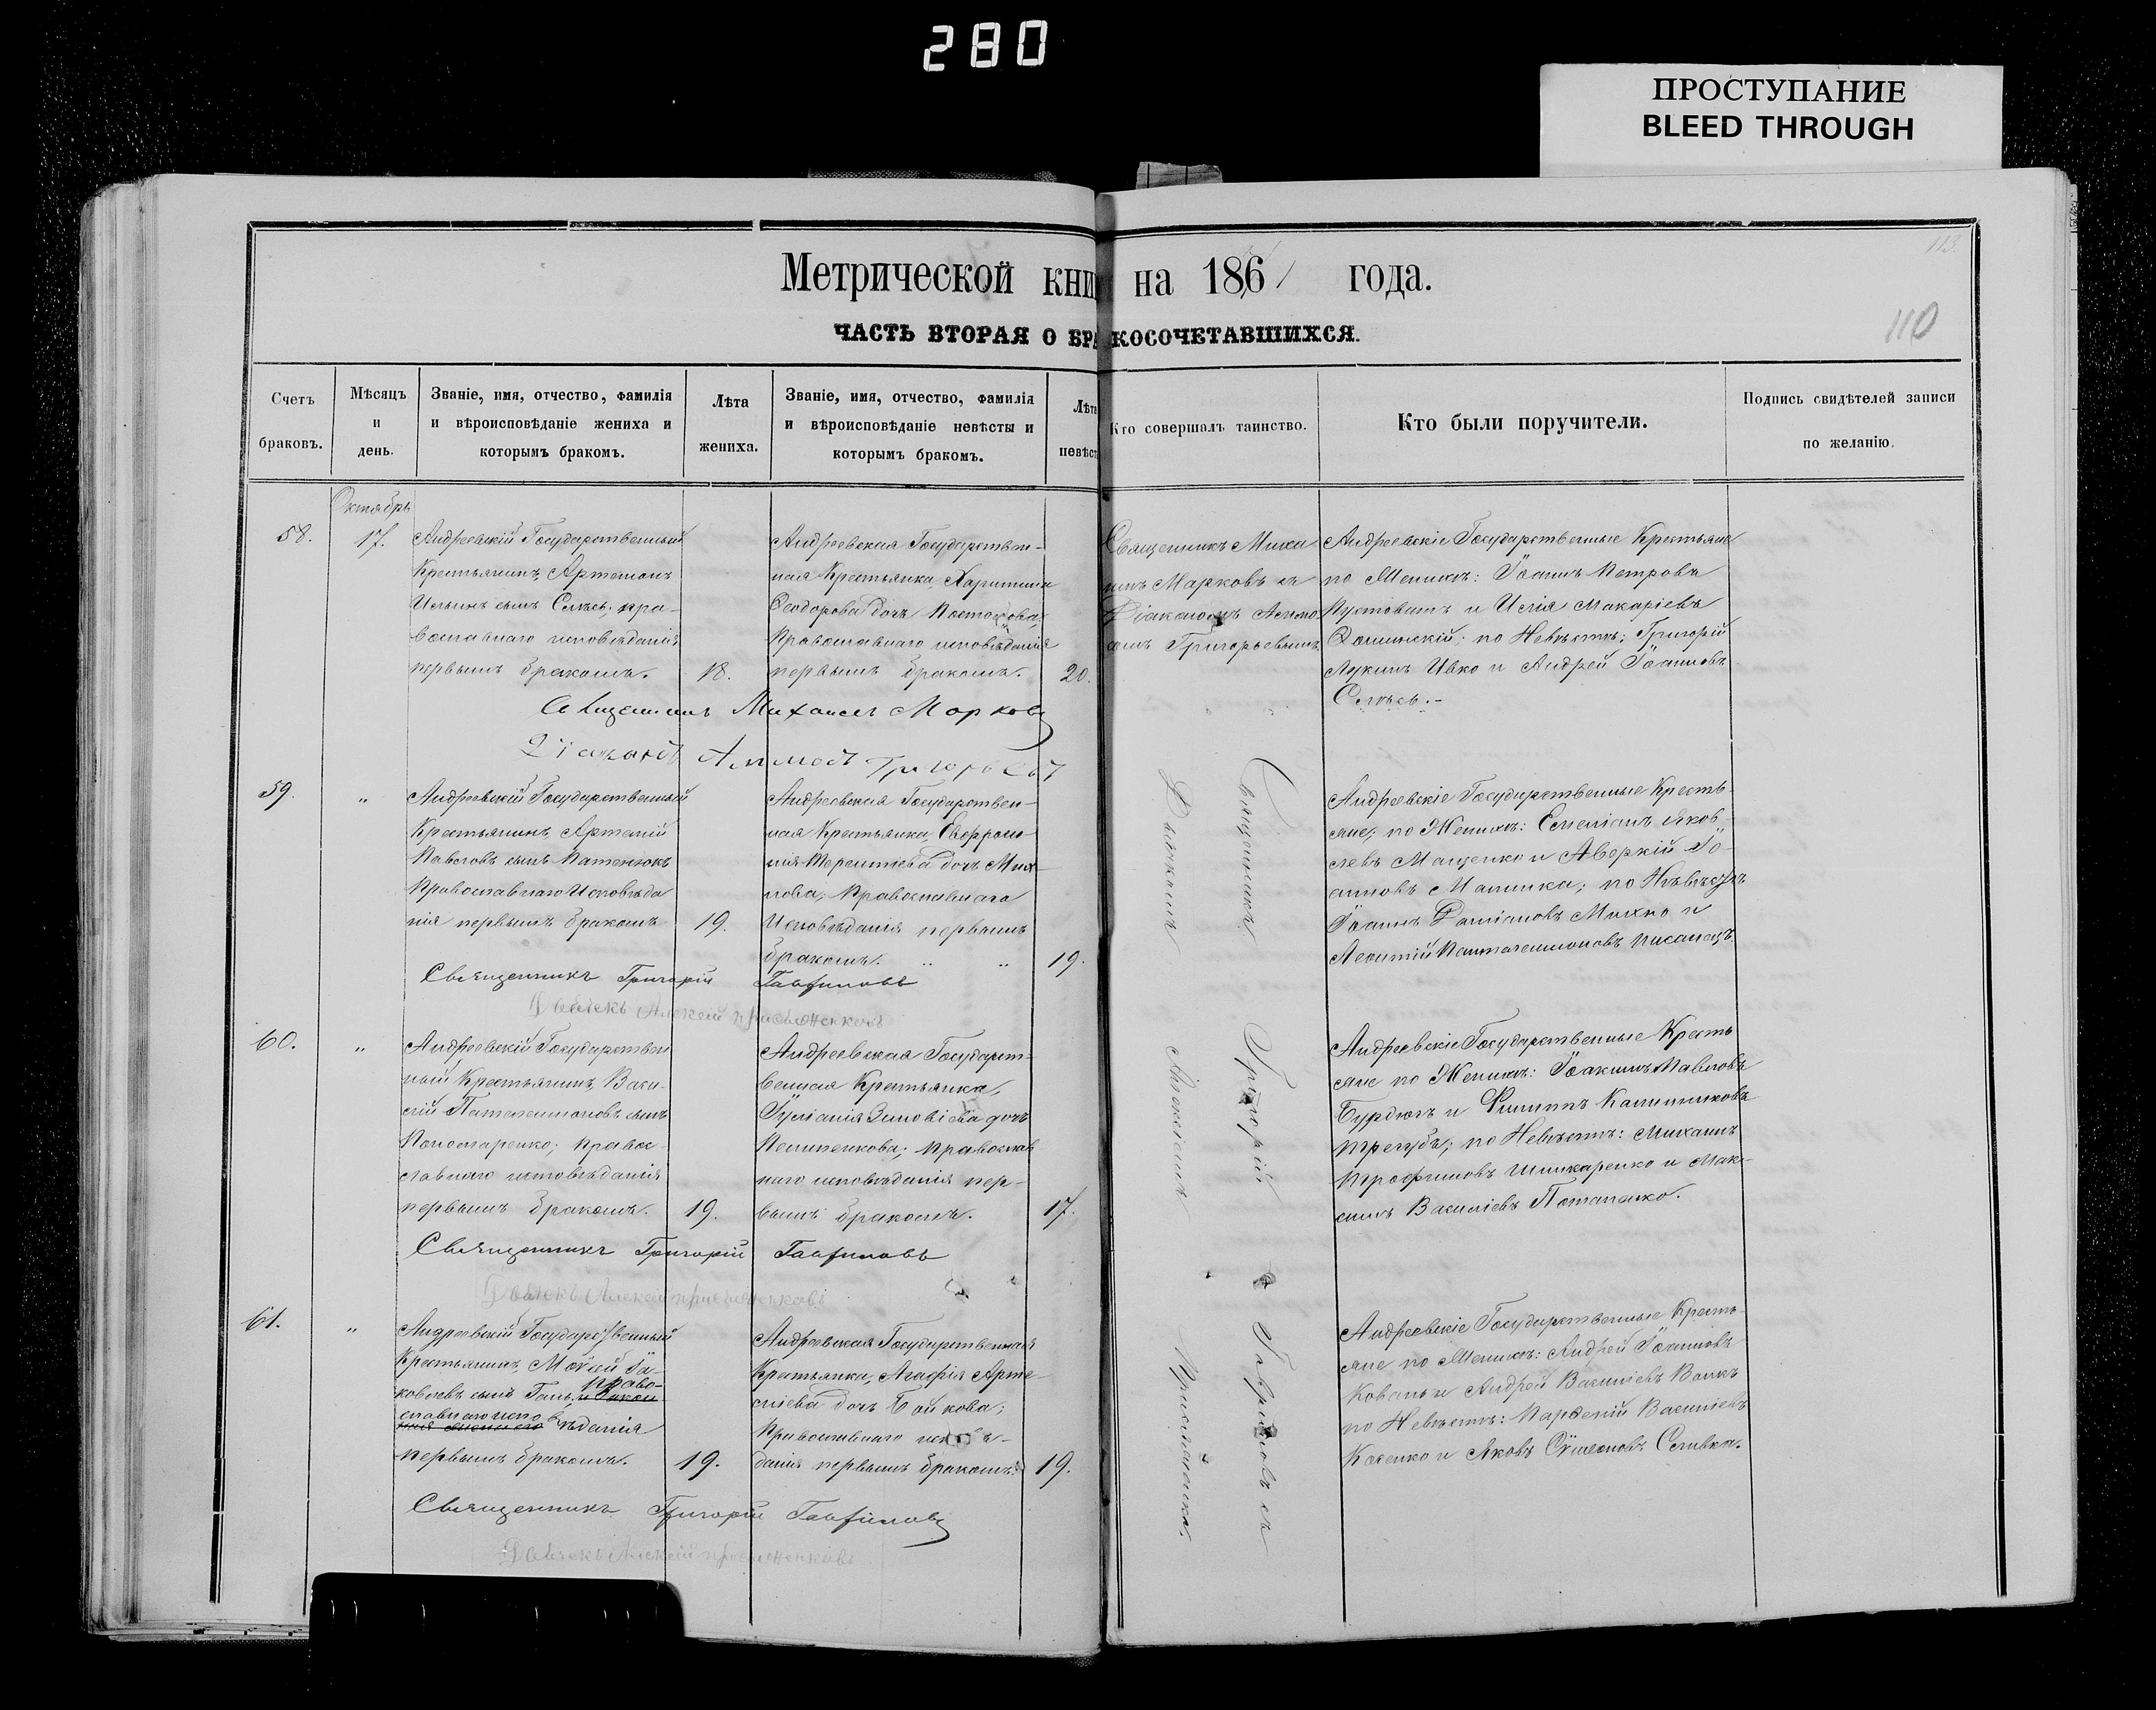 280
ПРОСТУПАНИЕ
BLEED THROUGH
113.
110
Метрической кни на 1861 года.
ЧАСТЬ ВТОРАЯ О БРАКОСОЧЕТАВШИХСЯ.
Счетъ
браковъ.
Мѣсяцъ
и
день.
Званіе, имя, отчество, фамилія
и вѣроисповѣданіе жениха и
которымъ бракомъ.
Лѣта
жениха.
Званіе, имя, отчество, фамилія
и вѣроисповѣданіе невѣсты и
которымъ бракомъ.
Лѣта
невѣст
Кто совершалъ таинство.
Кто были поручители.
Подпись свидѣтелей записи
по желанію.
Октябрь
58.
17.
Андреевскій Государственный
Крестьянинъ, Артемонъ
Ильинъ сынъ пра-
вославнаго исповѣданія
первымъ бракомъ.
18.
Андреевская Государствен-
ная Крестьянка, Харитина
Ѳеодорова дочь
Православнаго исповѣданія
первымъ бракомъ.
20.
Священникъ Миха
илъ Марковъ съ
Діакономъ
Григорьевымъ
Андреевскіе Государственные Крестьяне
по Женихѣ: Іоаннъ Петровъ
и Илія Макаріевъ
по Невѣстѣ: Григорій
Лукинъ Ивко и Андрей Іоанновъ
Священникъ Михаилъ Марковъ
Діаконъ Григорьевъ
59.
"
Андреевскій Государственный
Крестьянинъ, Артемій
Павловъ сынъ
Православнаго Исповѣда
нія первымъ бракомъ
19.
Андреевская Государствен-
ная Крестьянка, Евфроси-
нія Терентіева дочь Мих-
нова, Православнаго
Исповѣданія первымъ
бракомъ. " "
19.
Священникъ Григорій Гавриловъ съ
Дьячкомъ Алексіемъ
Андреевскіе Государственные Кресть
яне, по Женихѣ: Емеліанъ Яков
левъ Маценко и Аверкій Іо-
анновъ по Невѣстѣ
Іоаннъ Даміановъ Михно и
Леонтій Пантелеимоновъ Писанецъ.
Священникъ Григорій Гавриловъ
Дьячекъ Алексій
60.
"
Андреевскій Государствен
ный Крестьянинъ, Васи-
лій Пателеимоновъ сынъ
Пономаренко; Право-
славнаго исповѣданія
первымъ бракомъ.
19.
Андреевская Государст-
венная Крестьянка,
Іуліанія Зиновіева дочь
Православ
наго исповѣданія пер-
вымъ бракомъ.
17.
Андреевскіе Государственные Кресть
яне по Женихѣ: Іоакимъ Павловъ
Бурдюгъ и Филиппъ Калинниковъ
Трегубъ; по Невѣстѣ: Михаилъ
Трофимовъ Шинкаренко и Мак-
симъ Василіевъ Потапенко.
Священникъ Григорій Гавриловъ
Дьячекъ Алексій
61.
"
Андреевскій Государственный
Крестьянинъ, Моѵсей Іа-
ковлевъ сынъ право-
славнаго исповѣданія
первымъ бракомъ.
19.
Андреевская Государственная
Крестьянка, Агафія Арте-
міева дочь Бойкова;
Православнаго исповѣ-
данія первымъ бракомъ.
19.
Андреевскіе Государственные Кресть-
яне по Женихѣ: Андрей Іоанновъ
Коваль и Андрей Василіевъ Волкъ
по Невѣстѣ: Парѳеній Василіевъ
Косенко и Яковъ Сѵмеоновъ Сливка.
Священникъ Григорій Гавриловъ
Дьячекъ Алексій